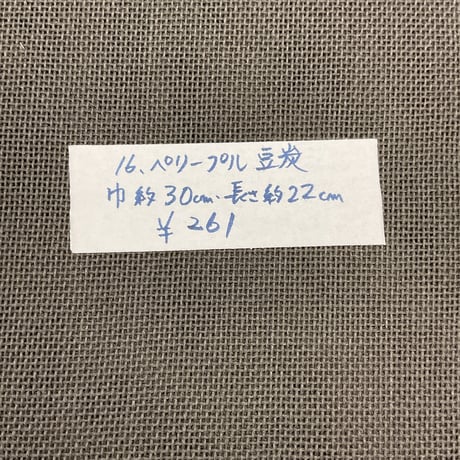 16、ペリープル 豆炭
巾約30cm・長さ約22cm
¥261